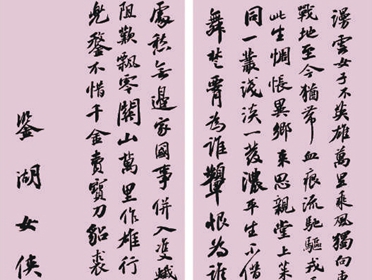 漫雲女子不英雄萬里乘風獨向
戰地至今猶帶血痕流馳驅戎
此生惆悵異鄉來思親堂上茱
同一叢淺淡一叢濃平生不借
舞楚霄為誰顰恨為誰
處愁無邊家國事併入雙蛾
阻歎飄零關山萬里作雄行
兜鍪不惜千金賣寶刀貂裘
鑒湖女俠